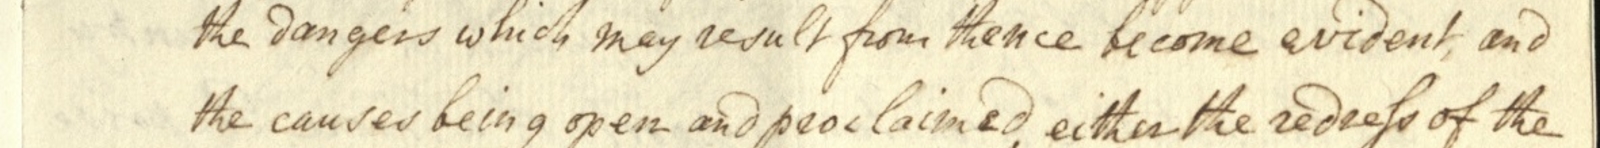 the dangers which may result from thence become evident, and
the causes being open and proclaimed, either the redress of the